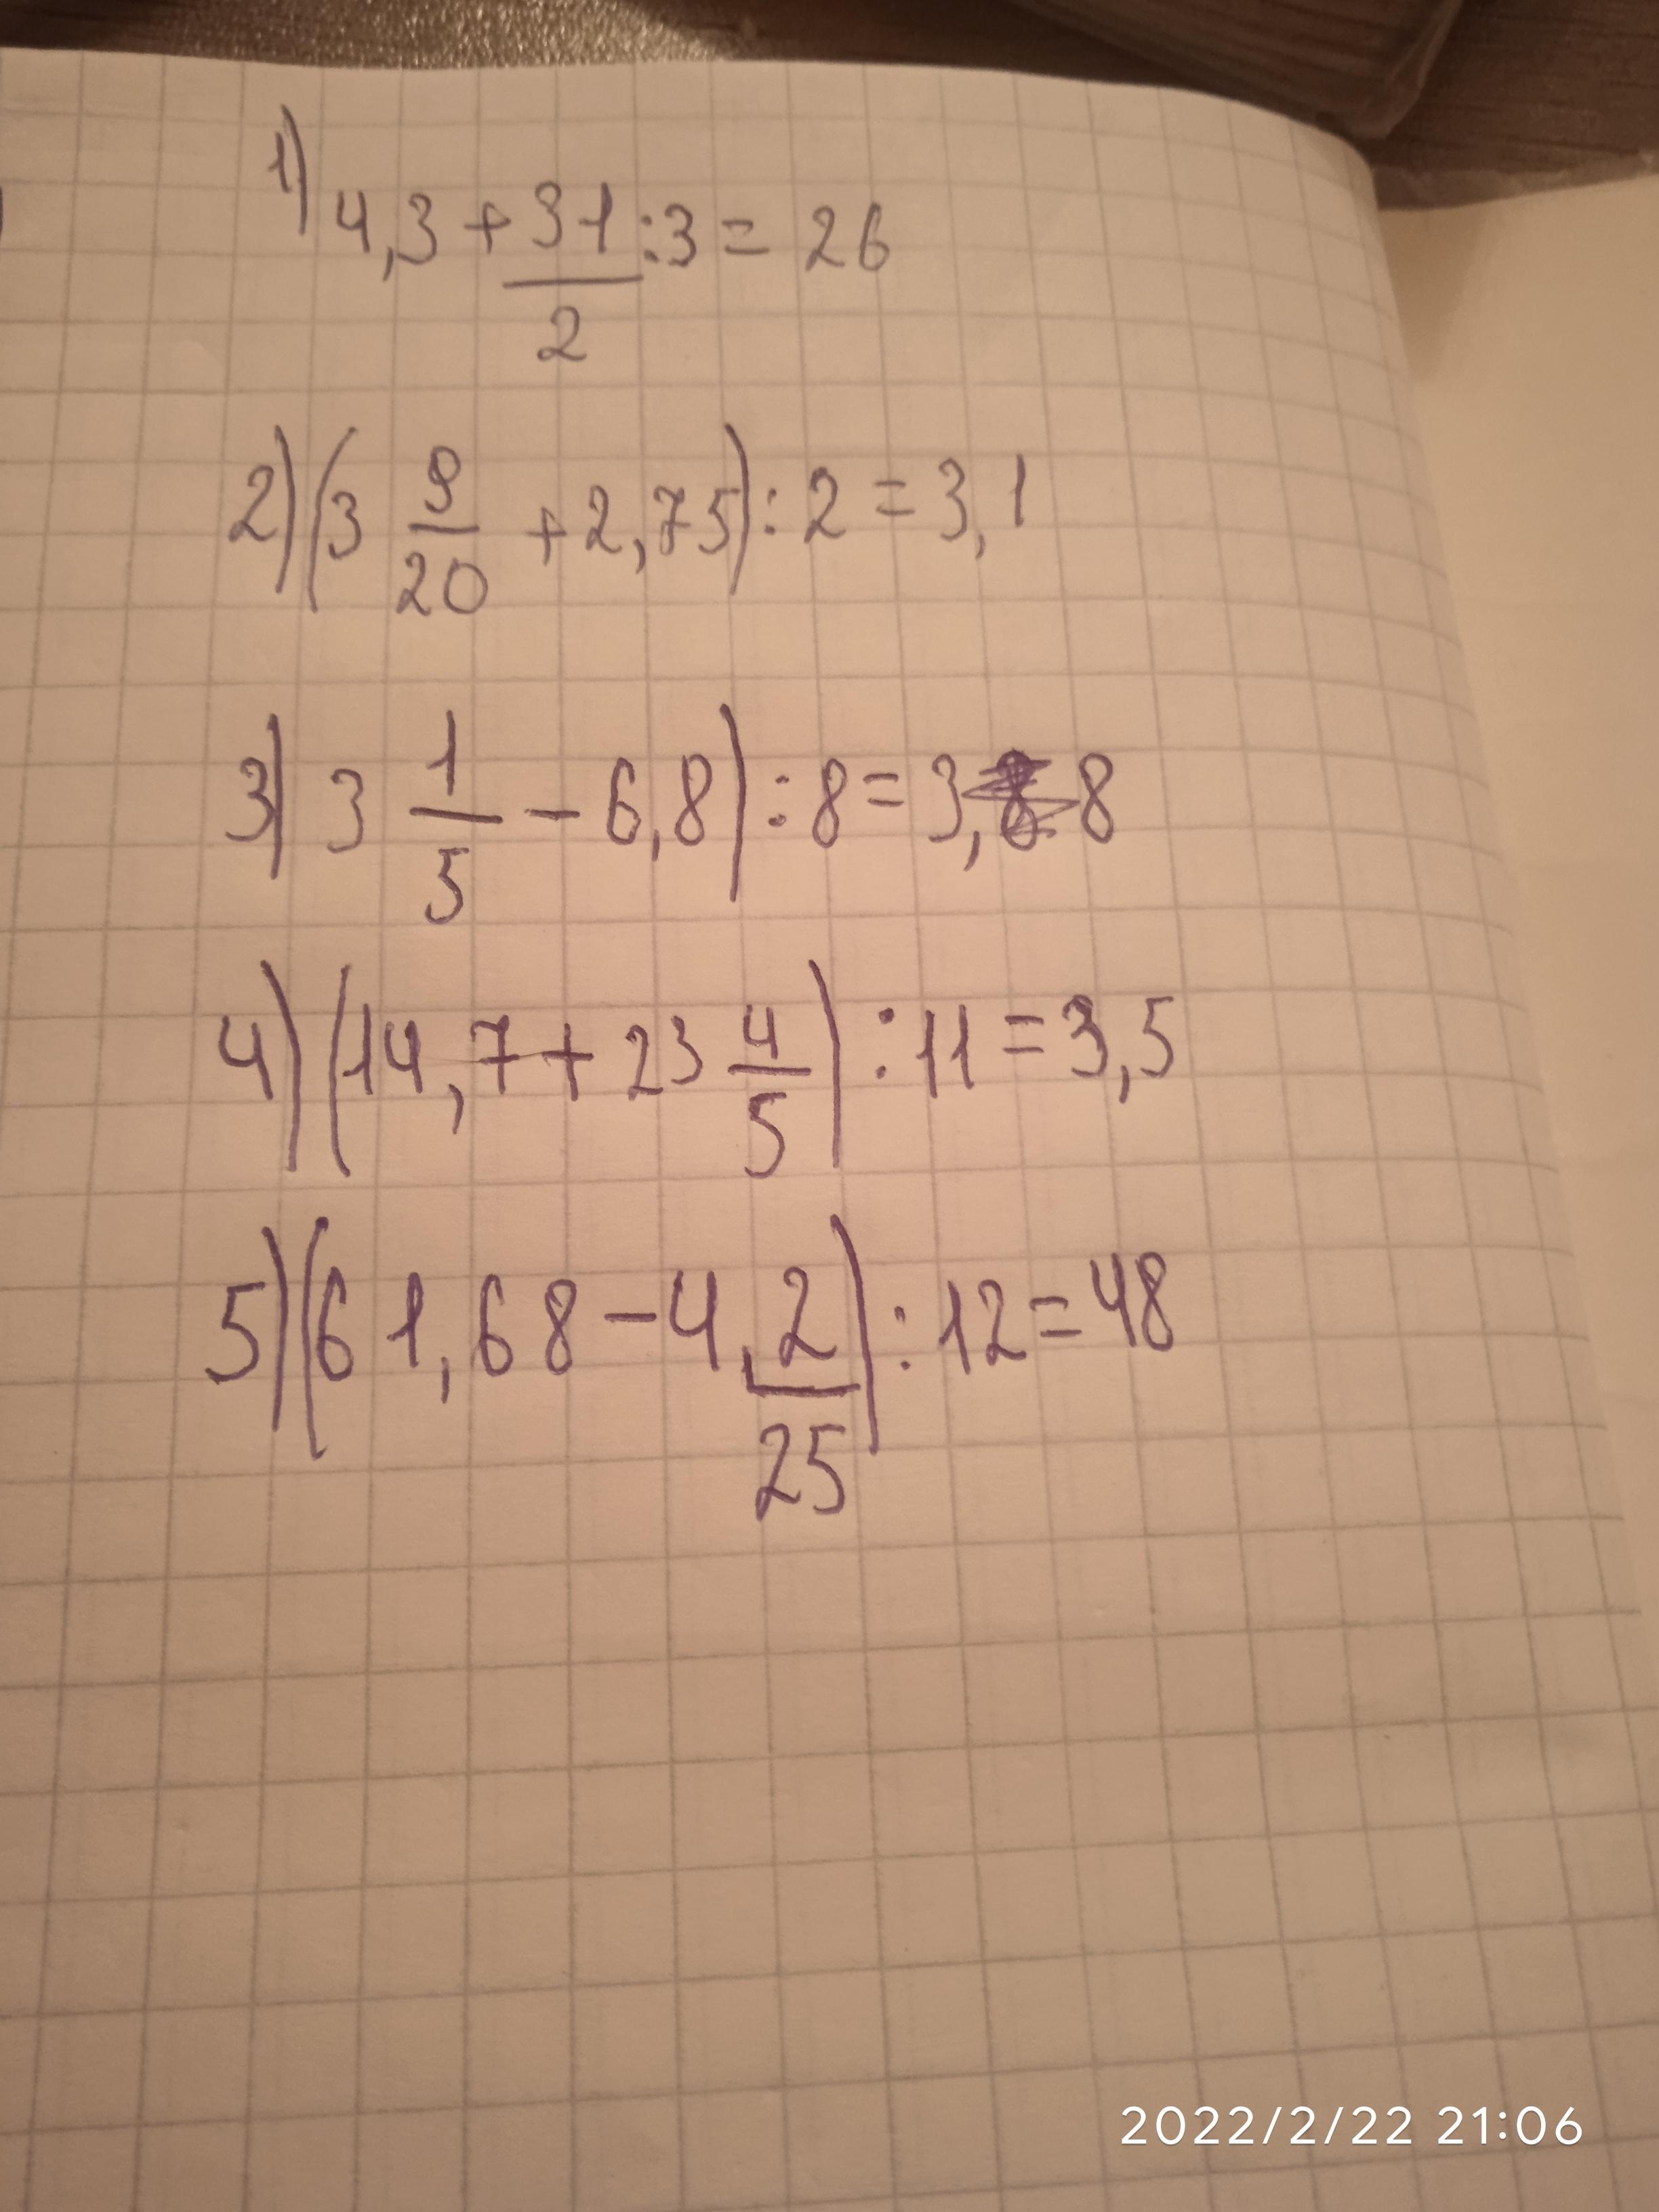 1) 4,3 + 31/2 : 3 = 26
2) (3 9/20 + 2,75) : 2 = 3,1
3) 3 1/5 - 6,8) : 8 = 3,8
4) (14,7 + 23 4/5) : 11 = 3,5
5) (61,68 - 4,2/25) : 12 = 48
2022/2/22 21:06